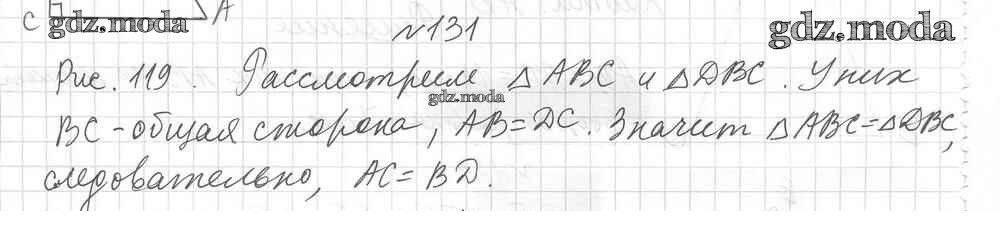 C A
gdz.moda
gdz.moda
№131
Рис. 119. Рассмотрим △ABC и △DBC. У них
gdz.moda
BC - общая сторона, AB=DC. Значит △ABC=△DBC,
следовательно, AC=BD.